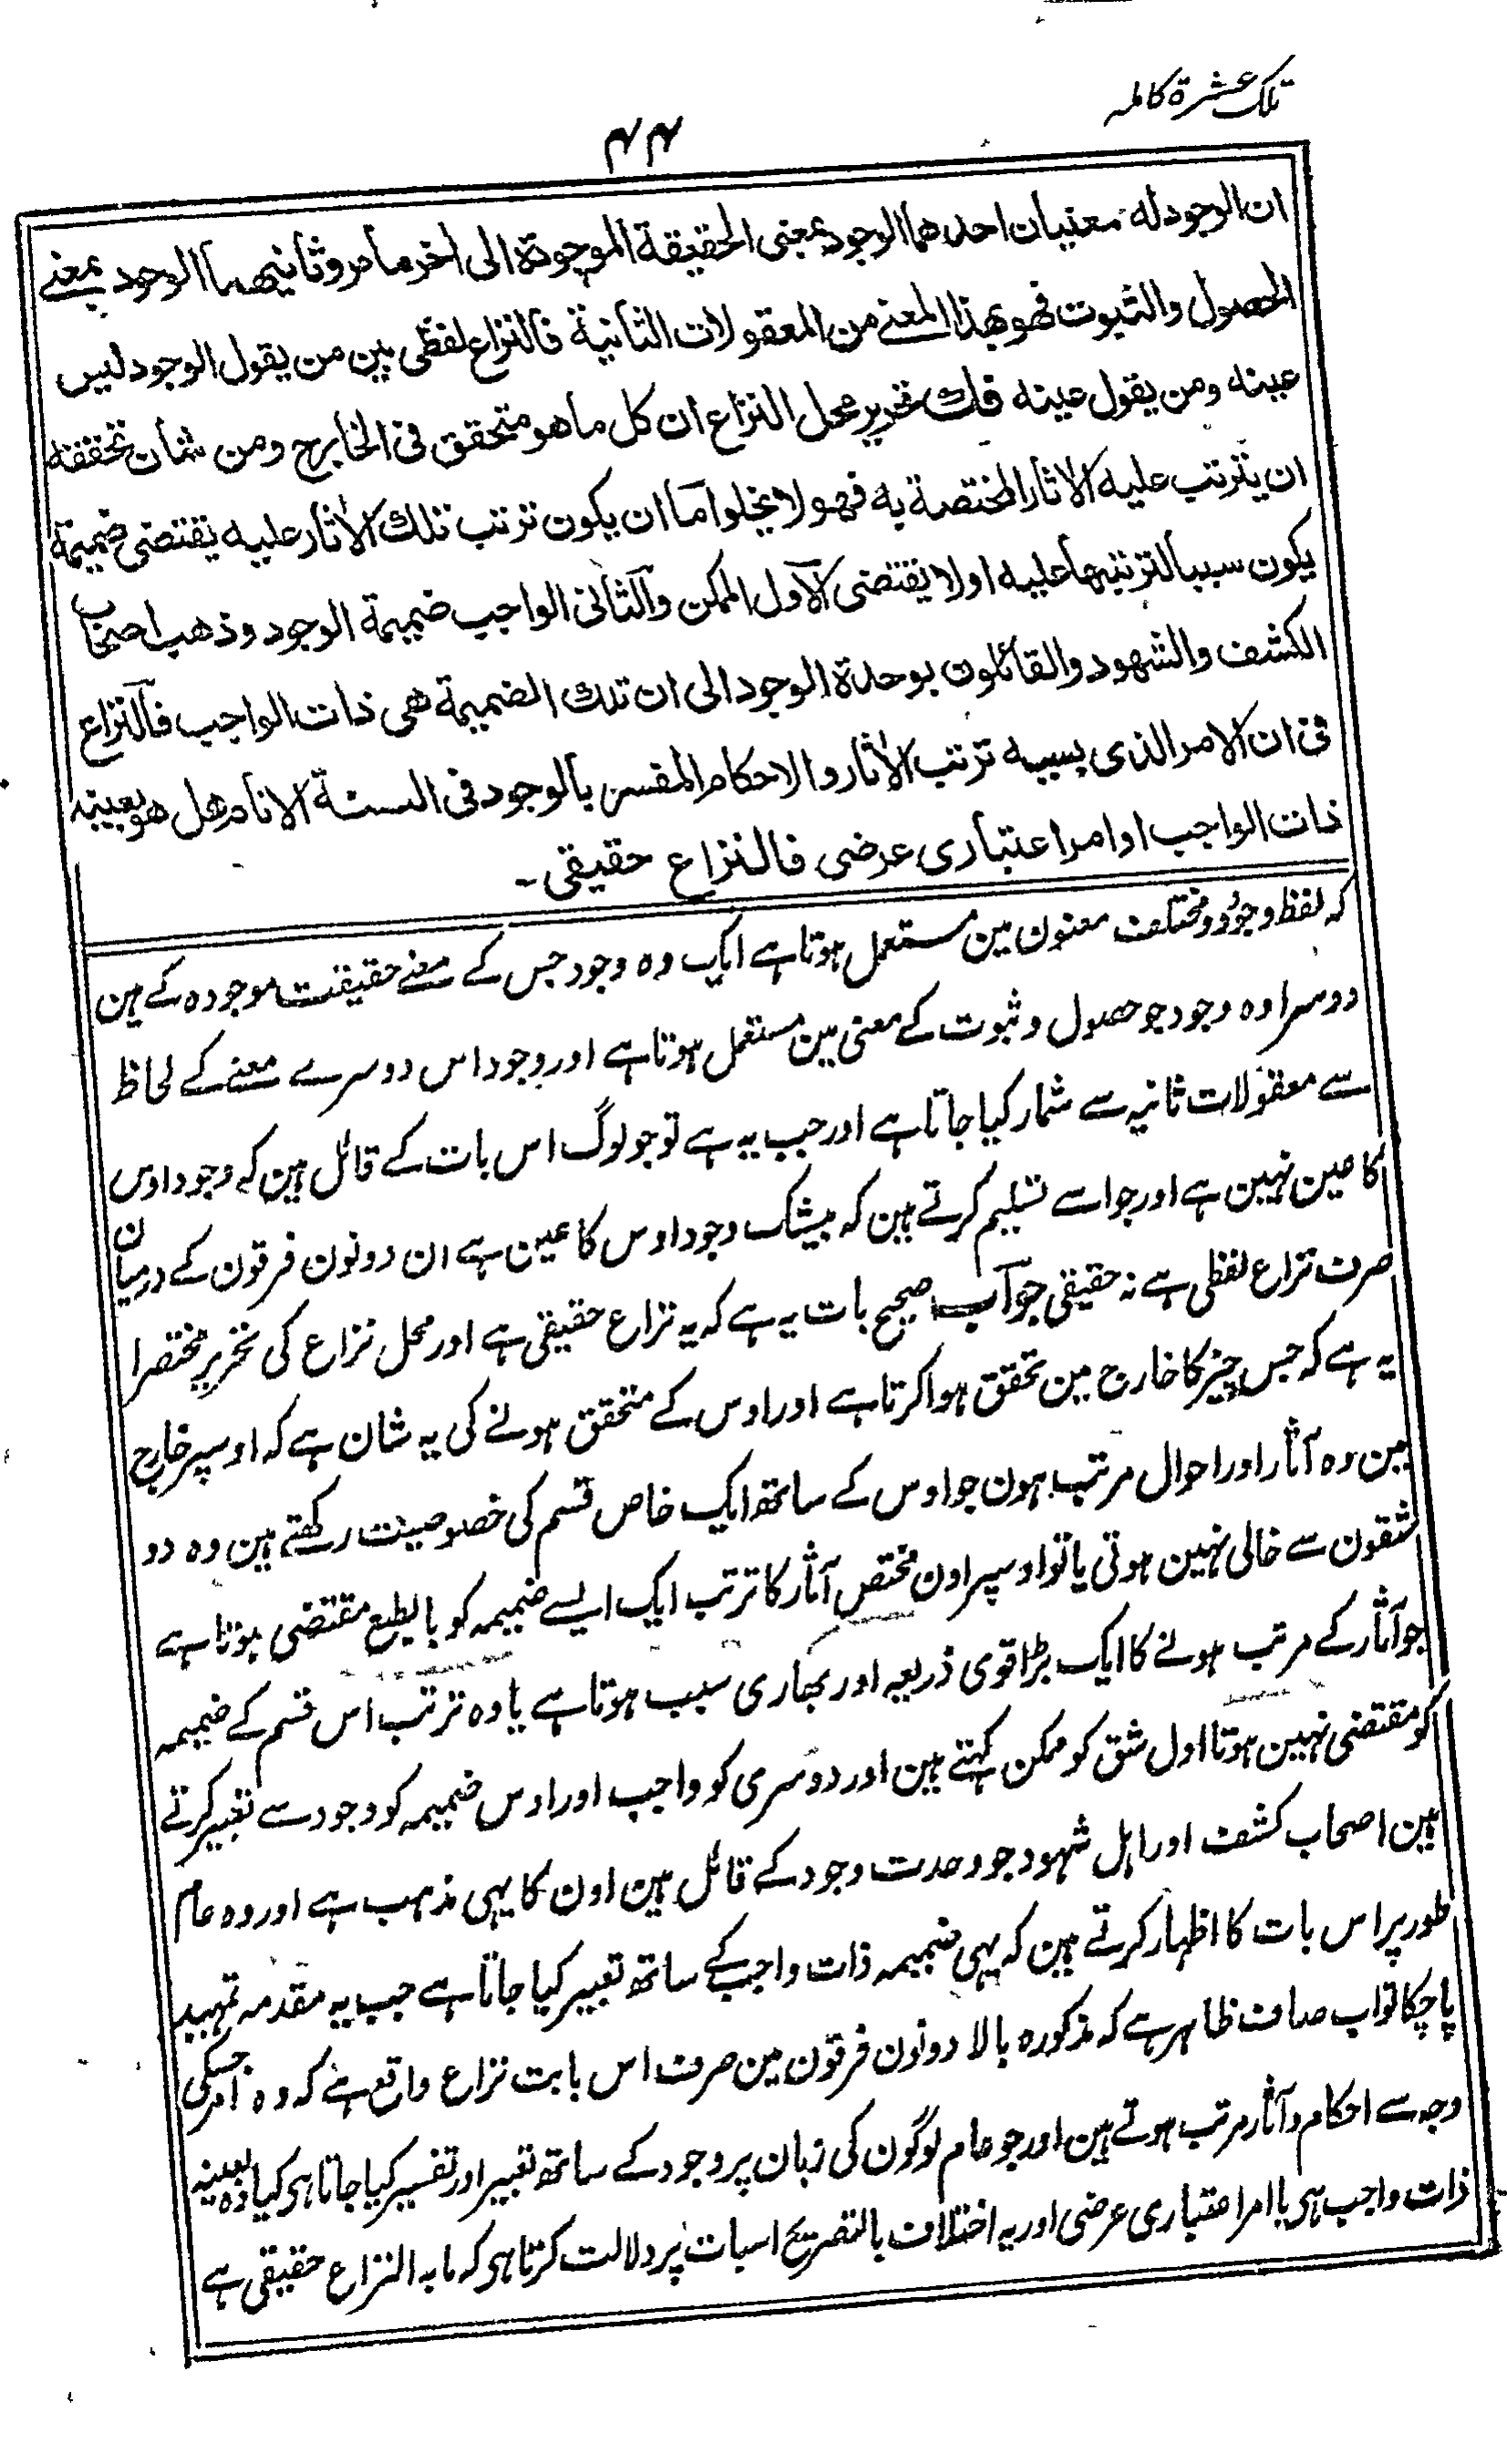 تلک عشرة کاملہ
۴۴
ان الوجود له معنیان احدهما الوجود بمعنی الحقیقة الموجودة الی اخر ما مر وثانیهما الوجود بمعنے
الحصول والثبوت فهو بهذا المعنے من المعقولات الثانیة فالنزاع لفظی بین من یقول الوجود لیس
عینه ومن یقول عینه قلت تحریر محل النزاع ان کل ما هو متحقق فی الخارج ومن شان تحققه
ان یترتب علیه الاثار المختصة به فهو لا یخلو اما ان یکون ترتب تلك الاثار علیه یقتضی ضمیمة
یکون سببا لترتبها علیه اولا یقتضی الاول الممکن والثانی الواجب ضمیمة الوجود وذهب اصحاب
الکشف والشهود والقائلون بوحدة الوجود الی ان تلك الضمیمة هی ذات الواجب فالنزاع
فی ان الامر الذی بسببه ترتب الاثار والاحکام المفسر بالوجود فی السنة الانام هل هو بعینه
ذات الواجب او امر اعتباری عرضی فالنزاع حقیقی۔
کہ لفظ وجود دو مختلف معنون مین مستعمل ہوتا ہے ایک وہ وجود جس کے معنے حقیقت موجودہ کے ہین
دوسرا وہ وجود جو حصول و ثبوت کے معنی مین مستعمل ہوتا ہے اور وجود اس دوسرے معنے کے لحاظ
سے معقولات ثانیہ سے شمار کیا جاتا ہے اور جب یہ ہے تو جو لوگ اس بات کے قائل ہین کہ وجود اوس
کا عین نہین ہے اور جو اسے تسلیم کرتے ہین کہ بیشک وجود اوس کا عین ہے ان دونون فرقون کے درمیان
صرف نزاع لفظی ہے نہ حقیقی جواب صحیح بات یہ ہے کہ یہ نزاع حقیقی ہے اور محل نزاع کی تحریر مختصرا
یہ ہے کہ جس چیز کا خارج مین تحقق ہوا کرتا ہے اور اوس کے متحقق ہونے کی یہ شان ہے کہ اوسپر خارج
مین وہ آثار اور احوال مرتب ہون جو اوس کے ساتھ ایک خاص قسم کی خصوصیت رکھتے ہین وہ دو
شقون سے خالی نہین ہوتی یا تو اوسپر اون مختص آثار کا ترتب ایک ایسے ضمیمہ کو بالطبع مقتضی ہوتا ہے
جو آثار کے مرتب ہونے کا ایک بڑا قوی ذریعہ اور بھاری سبب ہوتا ہے یا وہ ترتب اس قسم کے ضمیمہ
کو مقتضی نہین ہوتا اول شق کو ممکن کہتے ہین اور دوسری کو واجب اور اوس ضمیمہ کو وجود سے تعبیر کرتے
ہین اصحاب کشف اور اہل شہود جو وحدت وجود کے قائل ہین اون کا یہی مذہب ہے اور وہ عام
طور پر اس بات کا اظہار کرتے ہین کہ یہی ضمیمہ ذات واجب کے ساتھ تعبیر کیا جاتا ہے جب یہ مقدمہ تمہید
پا چکا تو اب صاف ظاہر ہے کہ مذکورہ بالا دونون فرقون مین صرف اس بابت نزاع واقع ہے کہ وہ امر جسکی
وجہ سے احکام و آثار مرتب ہوتے ہین اور جو عام لوگون کی زبان پر وجود کے ساتھ تعبیر اور تفسیر کیا جاتا ہی کیا وہ بعینہ
ذات واجب ہی یا امر اعتباری عرضی اور یہ اختلاف بالتصریح اسبات پر دلالت کرتا ہی کہ ما بہ النزاع حقیقی ہے